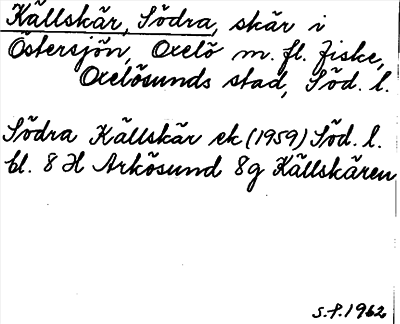 Källskär, Södra, skär i
Östersjön, Oxelö m. fl. fiske,
Oxelösunds stad, Söd. l.
Södra Källskär ek (1959) Söd. l.
bl. 8 H Arkösund 8g Källskären
S.P. 1962